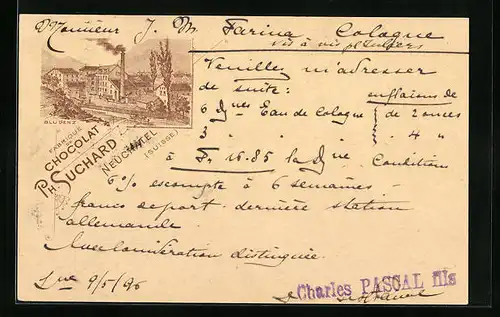 Monsieur J. M. Farina Cologne
vis à vis
BLUDENZ
FABRIQUE DE
CHOCOLAT
PH. SUCHARD
NEUCHATEL
(SUISSE)
Veuillez m'adresser
de suite: en flacons de
6 Dnes Eau de Cologne de 2 onces
3 " " " 4 "
à F. 16.85 la Dne Conditions
6% escompte à 6 semaines
franco de port dernière station
allemande
Avec considération distinguée.
Lne 9/5/96
Charles PASCAL fils